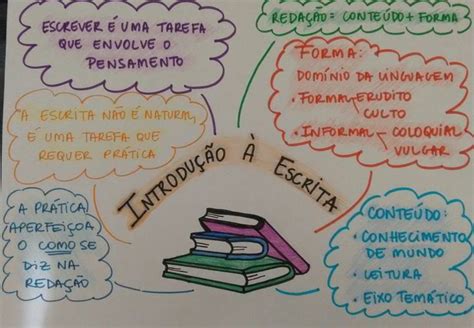 ESCREVER É UMA TAREFA
QUE ENVOLVE O
PENSAMENTO
A ESCRITA NÃO É NATURAL,
É UMA TAREFA QUE
REQUER PRÁTICA
A PRÁTICA
APERFEIÇOA
O COMO SE
DIZ NA
REDAÇÃO
INTRODUÇÃO À ESCRITA
REDAÇÃO: CONTEÚDO + FORMA
FORMA:
DOMÍNIO DA LINGUAGEM
• FORMAL - ERUDITO
CULTO
• INFORMAL - COLOQUIAL
VULGAR
CONTEÚDO:
• CONHECIMENTO
DE MUNDO
• LEITURA
• EIXO TEMÁTICO